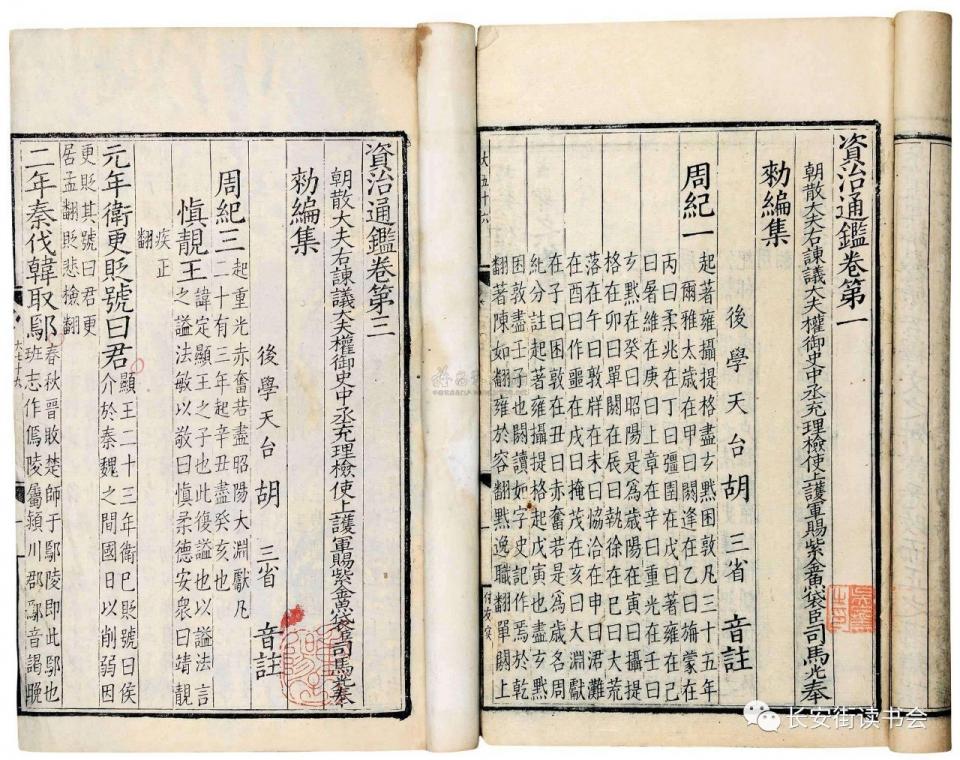 資治通鑑卷第一
朝散大夫右諫議大夫權御史中丞充理檢使上護軍賜紫金魚袋臣司馬光奉
勑編集
後學天台胡三省音註
周紀一
起著雍攝提格盡玄黓困敦凡三十五年
爾雅太歲在甲曰閼逢在乙曰旃蒙在
丙曰柔兆在丁曰彊圉在戊曰著雍在己
曰屠維在庚曰上章在辛曰重光在壬曰
玄黓在癸曰昭陽是為歲陽在寅曰攝提
格在卯曰單閼在辰曰執徐在巳曰大荒
落在午曰敦牂在未曰協洽在申曰涒灘
在酉曰作噩在戌曰掩茂在亥曰大淵獻
在子曰困敦在丑曰赤奮若是為歲名周
紀分註起著雍攝提格起戊寅也盡玄黓
困敦盡壬子也閼讀如字史記作焉於乾
翻著陳如翻雍於容翻黓逸職翻單閼上
大五十六
資治通鑑卷第三
朝散大夫右諫議大夫權御史中丞充理檢使上護軍賜紫金魚袋臣司馬光奉
勑編集
後學天台胡三省音註
周紀三
起重光赤奮若盡昭陽大淵獻凡
二十有三年起辛丑盡癸亥也
愼靚王
諱定顯王之子也此復諡也以諡法言
之諡法敏以敬曰愼柔德安衆曰靖靚
疾正
翻
元年衛更貶號曰君
顯王二十三年衛已貶號曰侯
介於秦魏之間國日以削弱因
更貶其號曰君更
居孟翻貶悲檢翻
二年秦伐韓取鄢
春秋晉敗楚師于鄢陵即此鄢也
班志作傿陵屬潁川郡鄢音謁晚
长安街读书会